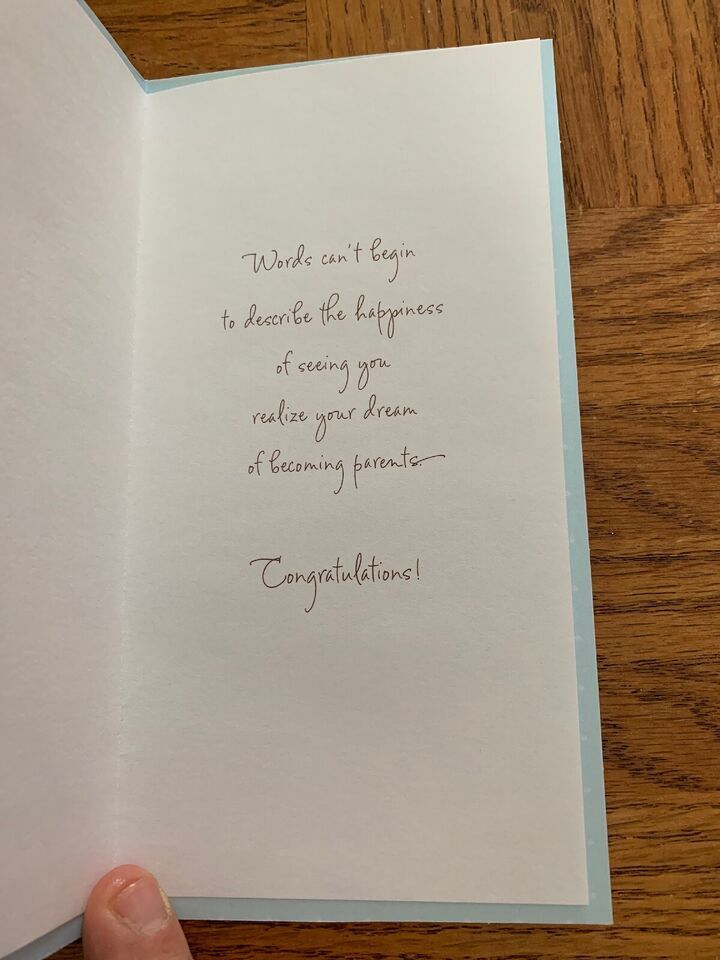 Words can't begin
to describe the happiness
of seeing you
realize your dream
of becoming parents.
Congratulations!